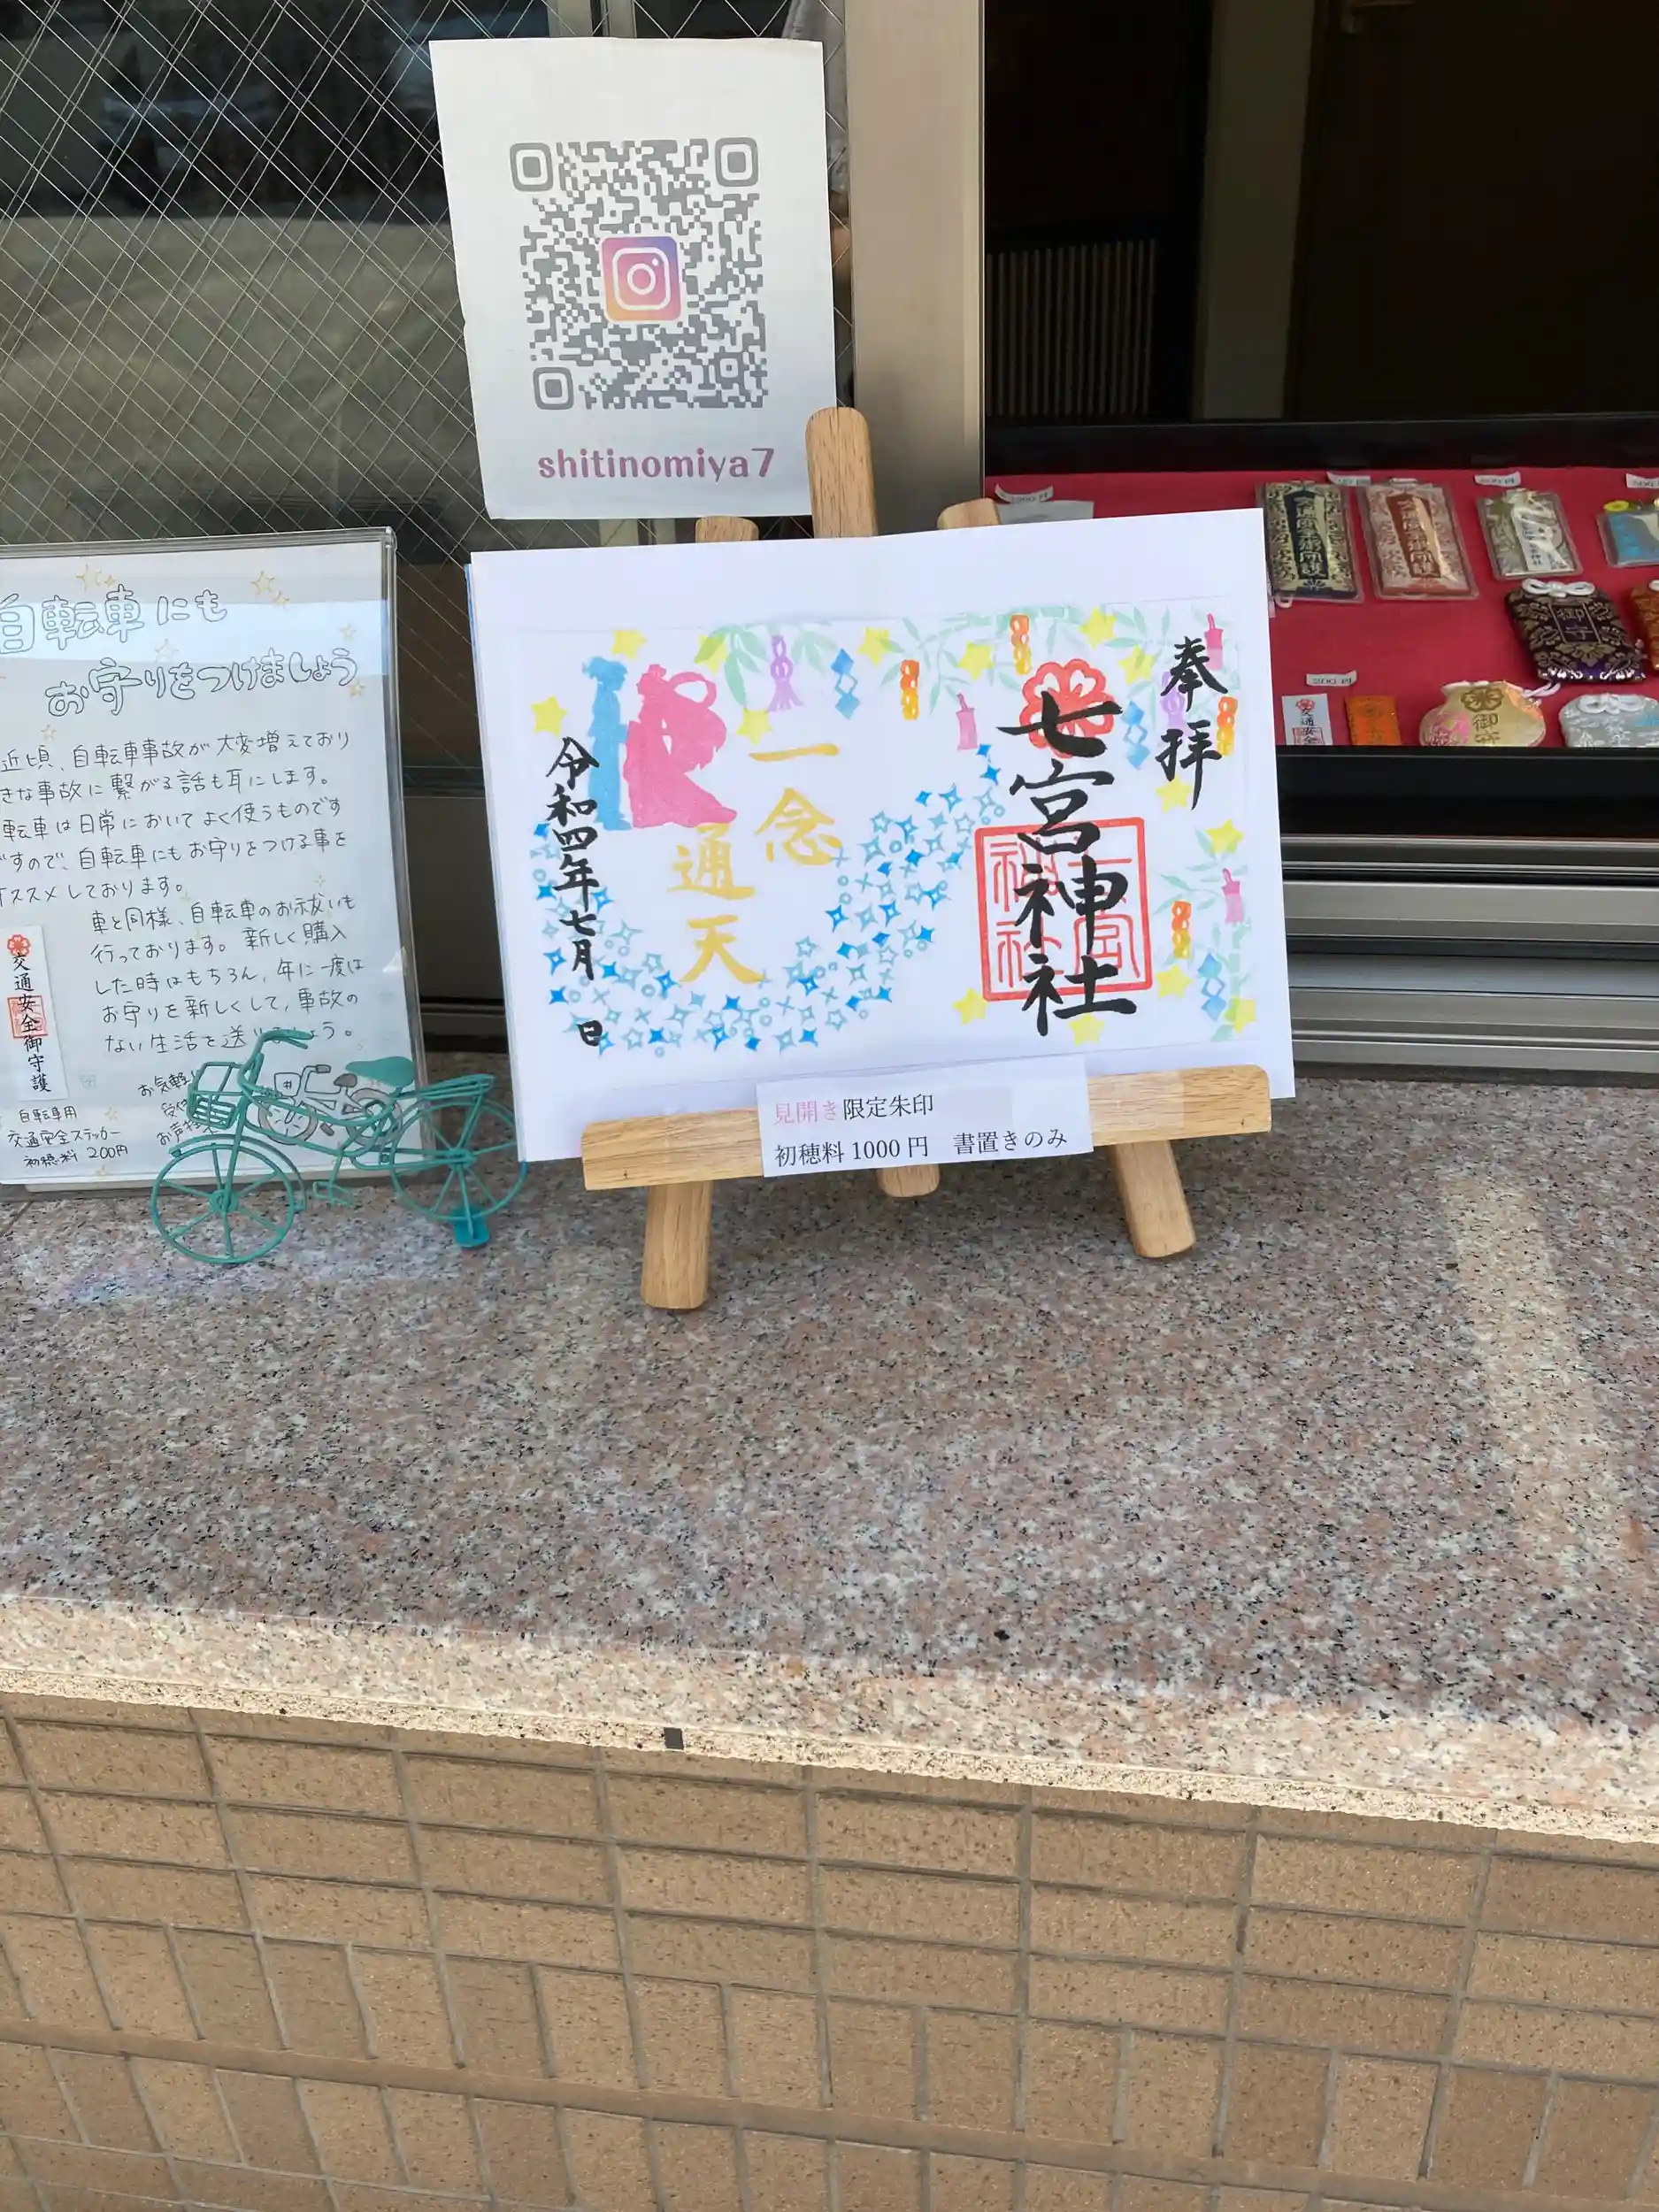 shitinomiya7
自転車にも
お守りをつけましょう
近頃、自転車事故が大変増えており
きな事故に繋がる話も耳にします。
転車は日常においてよく使うものです
すので、自転車にもお守りをつける事を
オススメしております。
車と同様、自転車のお祓いも
行っております。新しく購入
した時はもちろん、年に一度は
お守りを新しくして、事故の
ない生活を送りましょう。
お気軽に
交通安全御守護
自転車用
交通安全ステッカー
初穂料 200円
奉拝
七宮神社
一念
通天
令和四年七月 日
見開き限定朱印
初穂料 1000 円 書置きのみ
御守
200 円
交通安全
御守